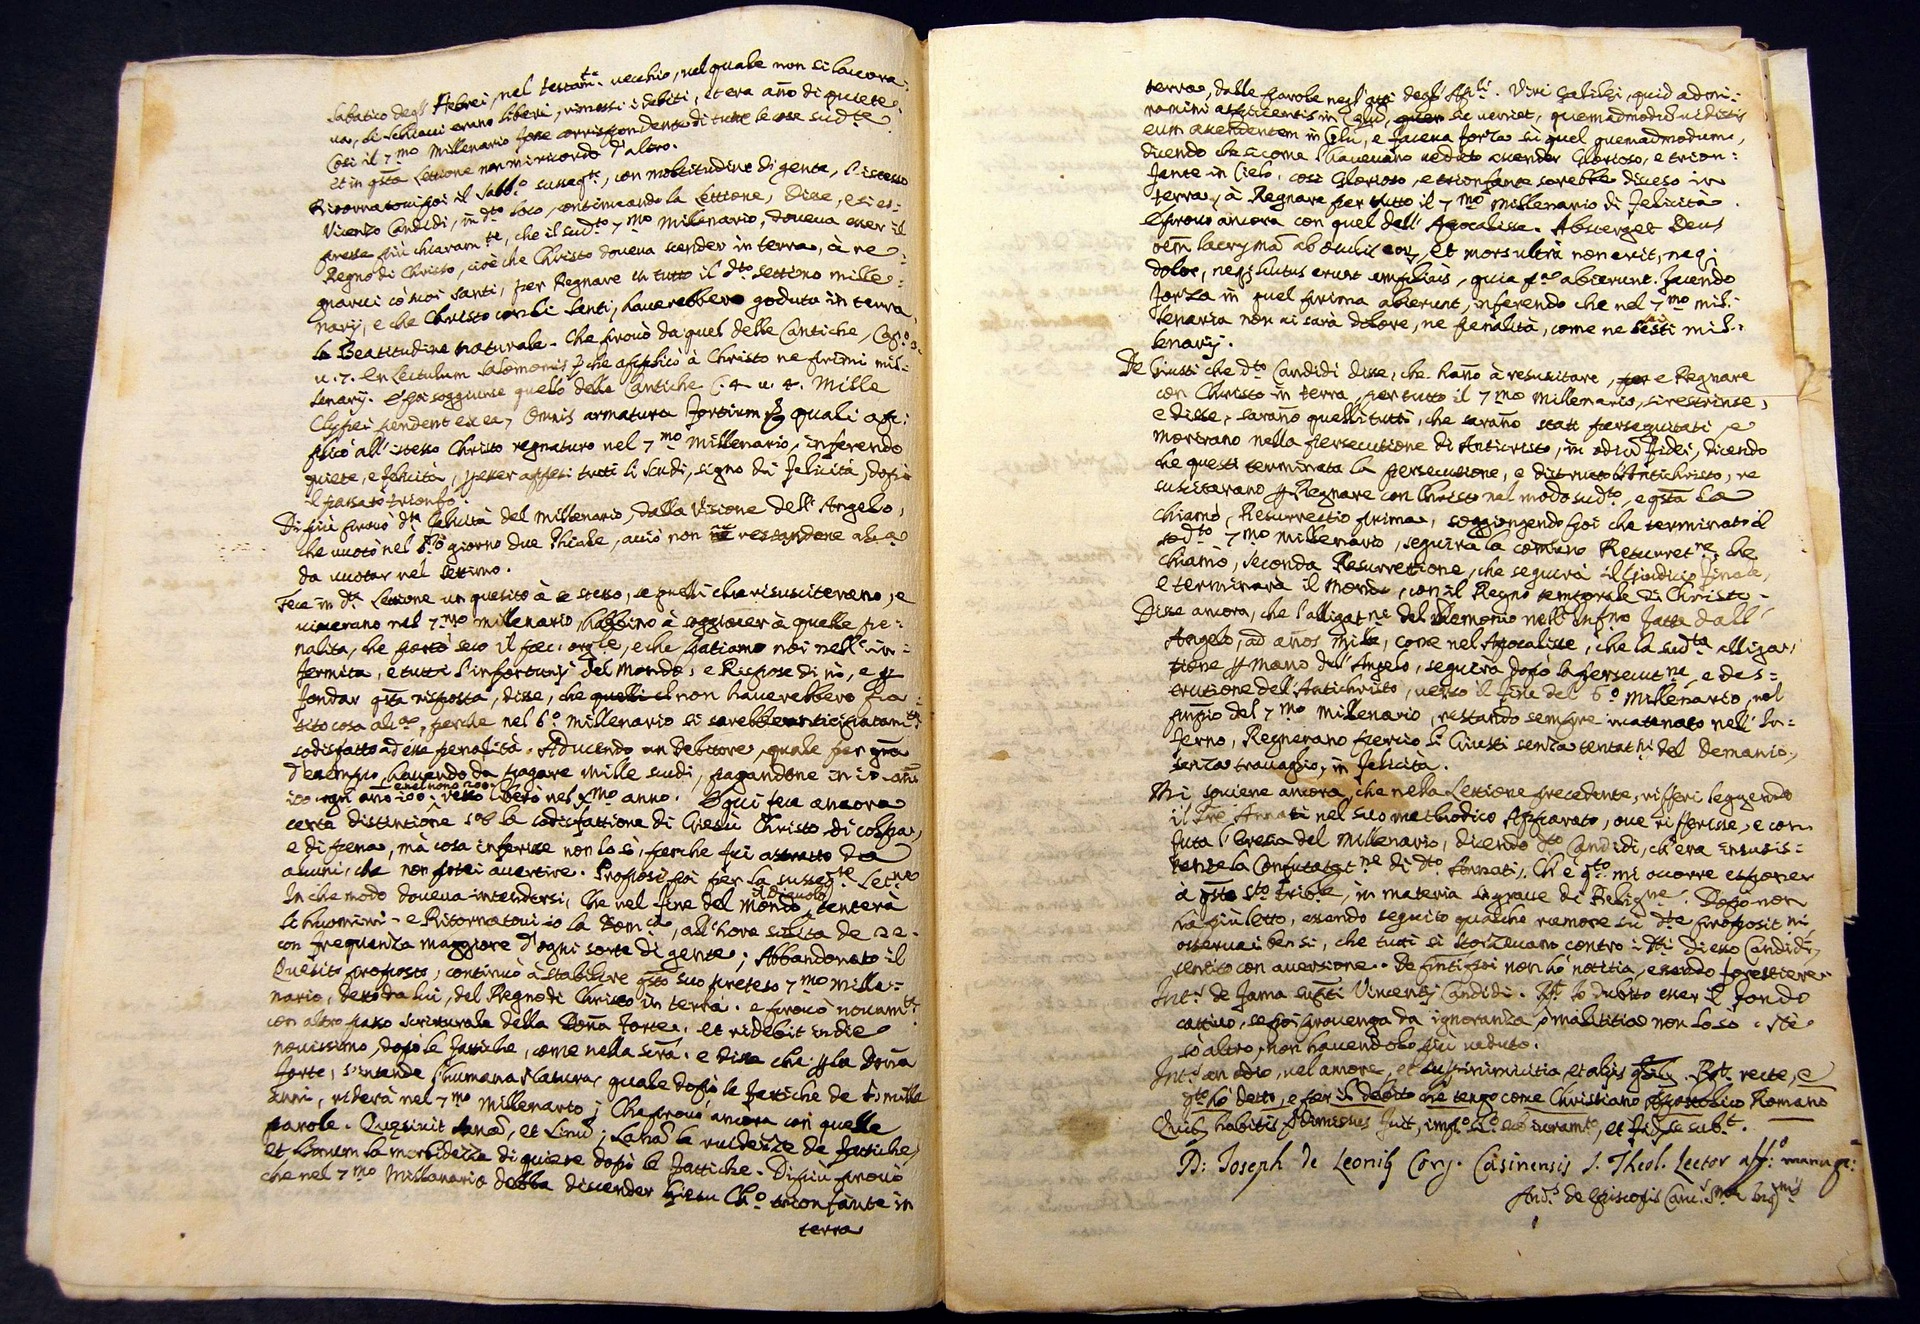 Sabatico degl' Hebrei, nel testam.te vecchio, nel quale non si lavora:
va, li schiavi erano liberi, rimessi i debiti, et era año di quiete
Così il 7.mo Millenario fosse corrispondente di tutte le cose sud.te
et in q̃sta Lettione non mi ricordo d'altro.
Ritornatovi poi il Sabb.o susseg.te, con moltitudine di gente, l'istesso
Vicenzo Candidi, in d.to loco, continuando la Lettione, Disse, e si es:
presse più chiaram.te, che il sud.to 7.mo Millenario, doveva esser il
Regno di Christo, cioè che Christo doveva scender in terra, à re:
gnarvi cò suoi Santi, per Regnare in tutto il d.to settimo mille:
nario, e che Christo con li Santi, haverebbero goduta in terra
la Beatitudine naturale. Che provò da quel delle Cantiche, Cap.o 3.
u. 7. En Lectulum Salomonis che applicò à Christo ne primi mil:
lenarij. E poi soggiunse quello delle Cantiche C. 4. u. 4. Mille
Clypei pendent ex ea, Omnis armatura fortium quali ap:
plicò all'istesso Christo regnaturo nel 7.mo Millenario, inferendo
quiete, e felicità, p esser appesi tutti li scudi, segno di felicità, dopò
il passato trionfo.
Di più provò d.ta felicità del Millenario, dalla Visione dell'Angelo,
che vuotò nel 6.o giorno due fhiale, acciò non restandone altra
da vuotar nel settimo.
Fece in d.ta Lettione un quesito à se stesso, se quelli che risusciterano, e
viverano nel 7.mo millenario, habbino à soggiacer à quelle pe:
nalità, che portò seco il pecc. orig.le, e che patiamo noi nell' in:
fermità, e tutti l'infortunij del Mondo, e Rispose di nò, e p
fondar q̃sta risposta, disse, che quelli non haverebbero pa:
tito cosa al.na, perche nel 6.o Millenario si sarebbe anticipatam.te
sodisfatto ad esse penalità. Adducendo un Debitore, quale per
d'esempio, havendo da pagare mille scudi, pagandone in 10 anni
ogni anno 100, nel X.mo anno. E qui fece ancora
certa distintione sop̃ la sodisfattione di Giesù Christo di colpa,
e di pena, mà cosa inferisse non lo sò, perche fui astratto da
alcuni, che non potei avertire. Propose poi per la susseg.te Lett.ne
In che modo doveva intendersi, che nel fine del mondo, il Diavolo tenterà
le huomini. e Ritornatovi io la Dom.ca, all'hore solita de 22.
con frequenza maggiore d'ogni sorte di gente; Abbandonato il
Quesito proposto, continuò à stabilire q̃sto suo preteso 7.mo Mille:
nario, detto da lui, del Regno di Christo in terra. e provò novam.te
con altro passo scritturale della Doña forte. et ridebit in die
novissimo, dopo le fattiche, come nella scrã. e disse che p la Doña
forte, s'intende l'humana Natura, quale dopò le fattiche de 6. milla
anni, riderà nel 7.mo Millenario; Che provò ancora con quelle
parole. Quęsivit lanã, et Linũ; Lahã la ruidezze de fattiche,
et Linum la morbidezza di quiete dopò le fattiche. Di più provò
che nel 7.mo Millenario debba discender Giesu Ch.o trionfante in
terra
terra, dalle parole negl'atti degl'Ap.li. Viri Galilęi, quid admi:
ramini aspicientis in Cęlũ, sic veniet, quemadmodũ vidistis
eum ascendentem in Cęlũ, e faceva forza sù quel quemadmodum,
dicendo che sicome l'havevano veduto ascender Glorioso, e trion:
fante in Cielo, così Glorioso, e trionfante sarebbe disceso in
terra, à Regnare per tutto il 7.mo Millenario di felicità.
E provò ancora con quel dell' Apocalisse. Absterget Deus
oẽm lacrymã ab oculis eor, et mors ultrà non erit, neq;
dolor, neq; luctus erunt amplius, quia p.a abierunt. facendo
forza in quel prima abierunt, inferendo che nel 7.mo mil:
lenario non ci sarà dolore, ne penalità, come ne sesti mil:
lenarij.
De Giusti che d.to Candidi disse, che hano à resuscitare, e Regnare
con Christo in terra, per tutto il 7.mo Millenario, si restrinse,
e disse, sarano quelli tutti, che sarano stati perseguitati, e
morirano nella persecutione di Anticristo, in odiũ fidei, dicendo
che questi terminata la persecutione, e distrutto l'Antichristo, re
suscitarano p Regnare con Christo nel modo sud.to, e q̃sta la
chiamò, Resurrectio prima, soggiongendo poi che terminato il
sod.to 7.mo millenario, seguirà la comune Resurret.ne che
chiamò, seconda Resurrettione, che seguirà il Giudicio finale,
e terminarà il Mondo, con il Regno temporale di Christo.
Disse ancora, che l'alligat.ne del Demonio nell'Infno fatta dall'
Angelo, ad años mille, come nel Apocalisse, che la sud.ta alliga:
tione p mano dell'Angelo, seguirà dopò la persecut.ne, e des:
trutione dell'Antichristo, verso il fine del 6.o Millenario, nel
prinpio del 7.mo Millenario, restando sempre incatenato nell' In:
ferno, Regnerano perciò li Giusti senza tentat.ni del Demonio,
senza travaglio, in felicità.
Mi soviene ancora, che nella Lettione precedente, rifferì leggendo
il P̃re Annati nel suo methodico Apparato, ove rifferisse, e con
futa l'Eresia del Millenario, dicendo d.to Candidi, ch'era insusis:
tente la Confutat.ne di d.to Annati, Ch' è q.to mi occorre esponer
à q̃sto S.to Trib.le, in materia sì grave di Relig.ne. Dopo non
ha più letto, essendo seguito qualche rumore sù d.te proposit.ni,
osservai ben sì, che tutti si storcevano contro i d.ti di esso Candidi,
sentito con aversione. De finti poi non hò notitia, essendo forestiere
Int.s de fama eiusdẽ Vincentij Candidi. R.t Io dubito esser il fondo
cattivo, se poi provenga da ignoranza, ò malitia non lo sò. Nè
sò altro, non havendolo più veduto.
Int.s an odio, vel amore, et inimicitia et alijs. R.t recte, e
q.to hò detto, e per il debito che tengo come Christiano Apostolico Romano
Quib, habitis dimissus fuit, impo.to silo. cũ iuramto, et fidẽ se subt.
D: Joseph de Leonis Cong. Casinensis S. Theol. Lector aff.o manu p:
And.s de Episcopis Canc.s